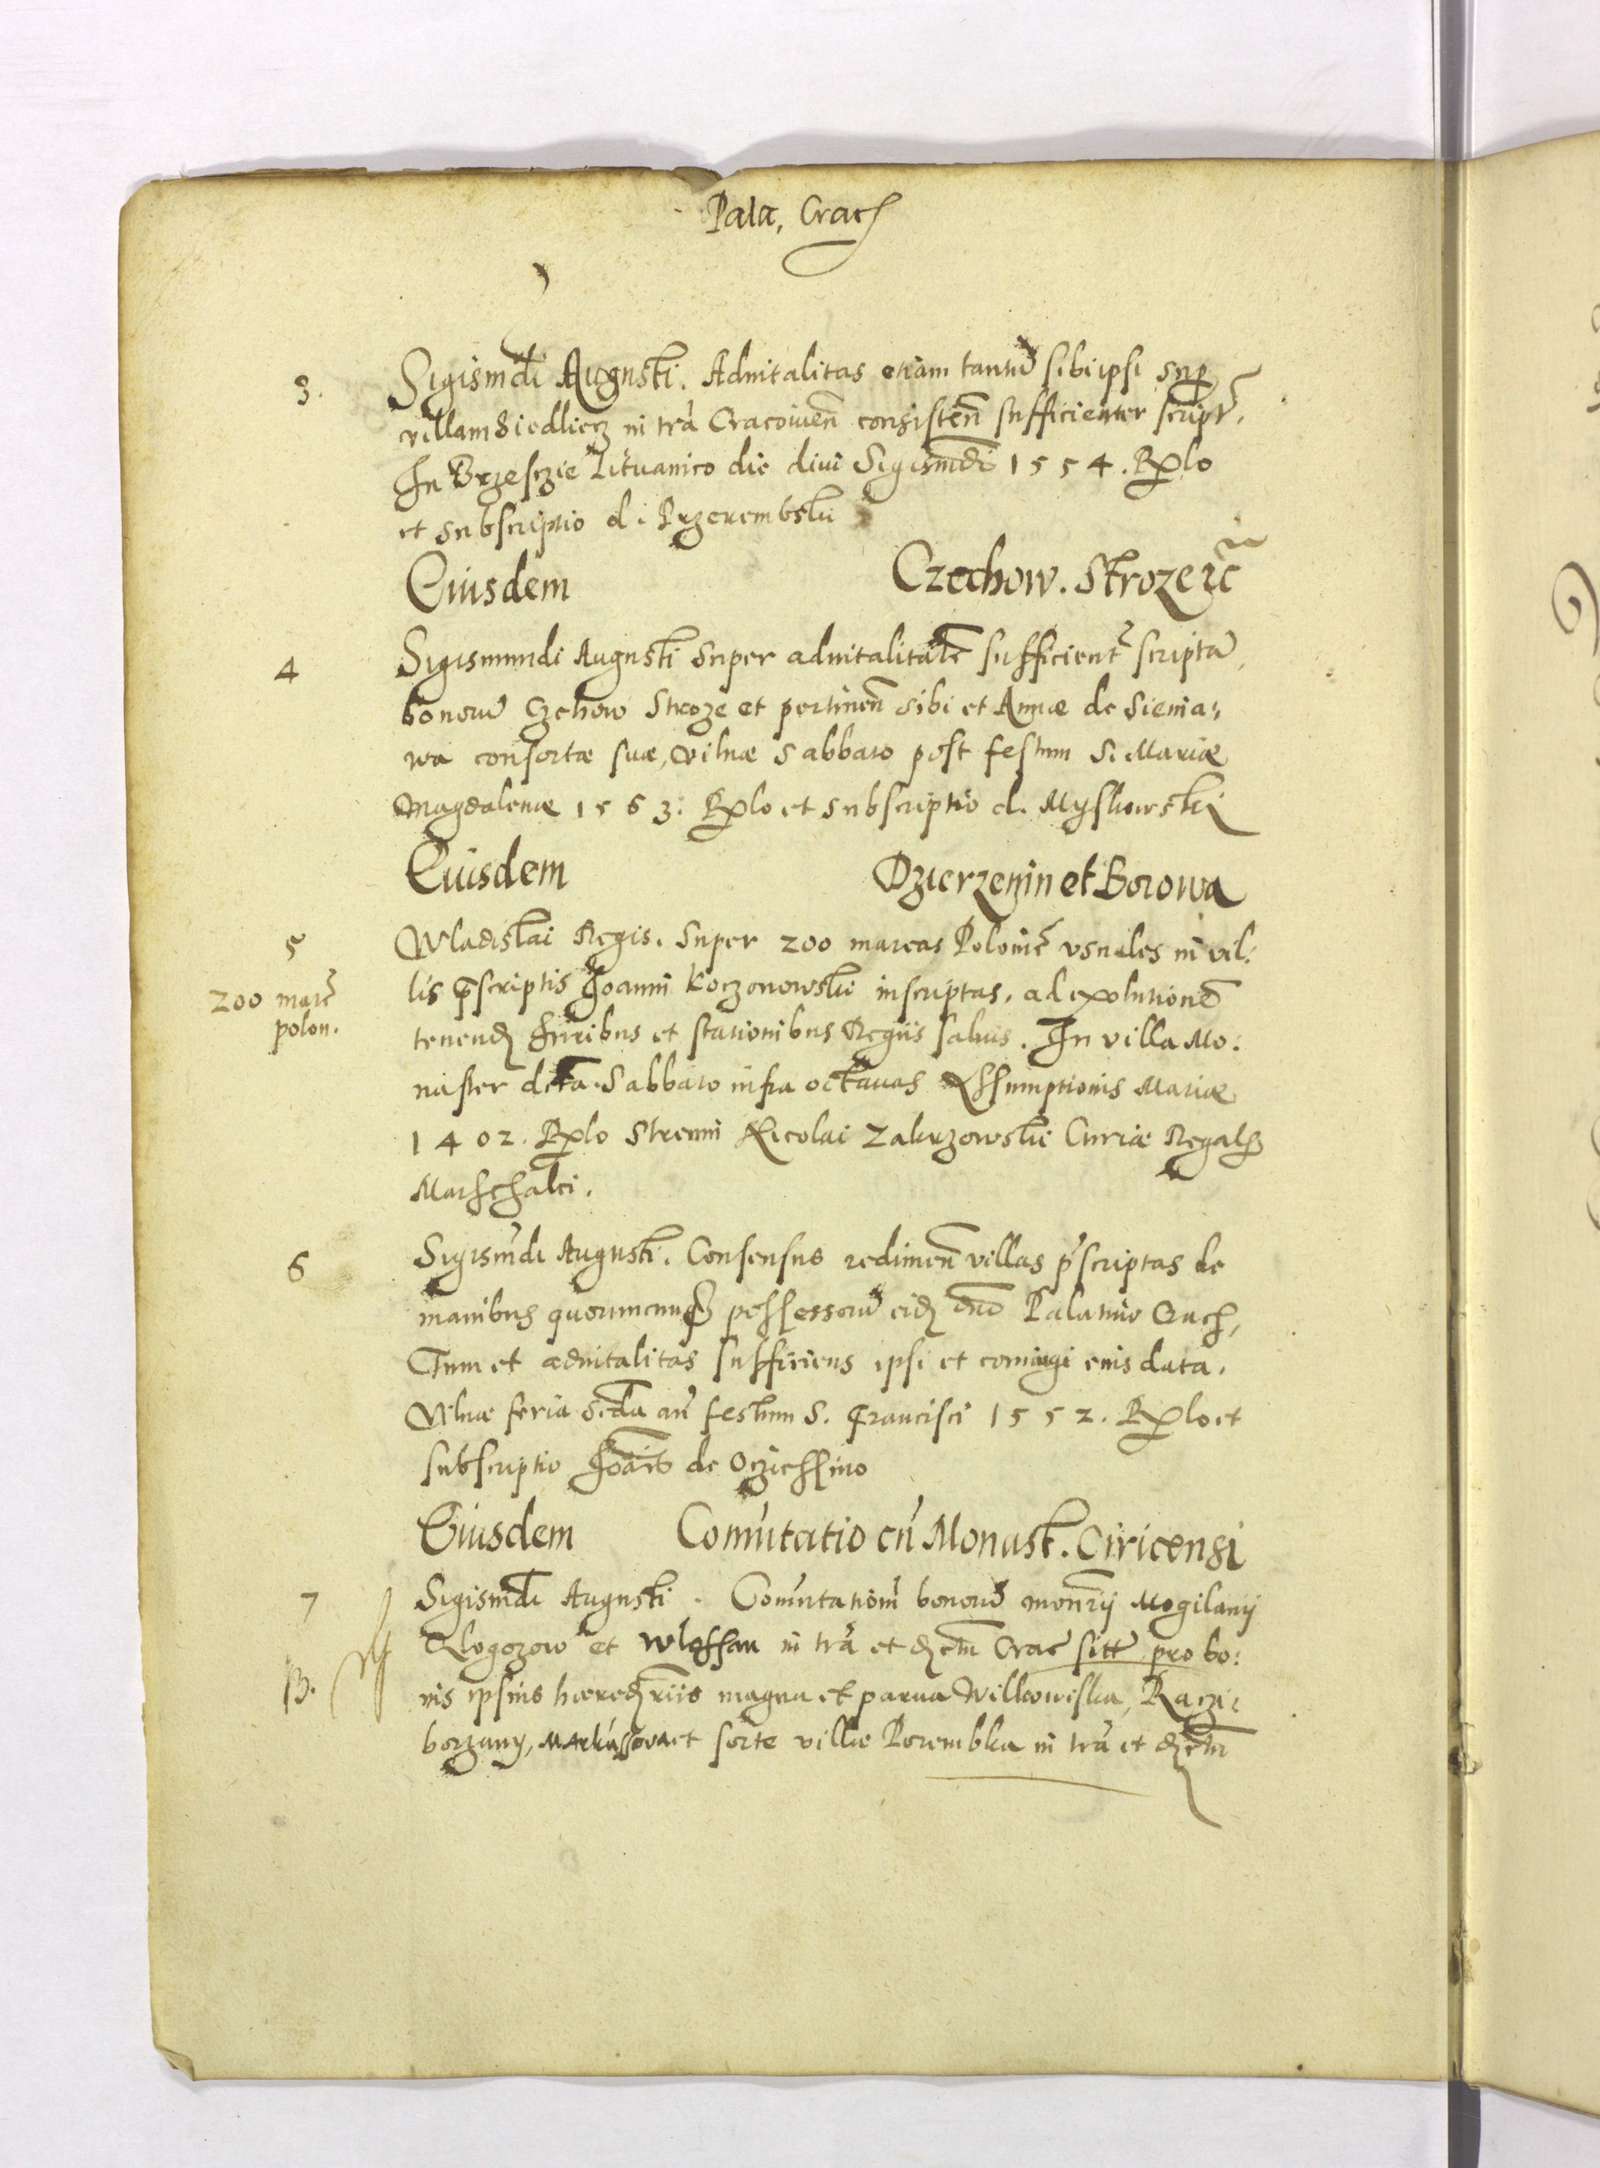 Pala, Crac
3. Sigismdi Augusti. Aduitalitas etiam tantu sibiipsi sup
villam Siedliecz in tra Cracouien consisten sufficienter script.
In Brzesczie Lituanico die diui Sigismdi 1554. Rlo
et subscriptio d. Przerembski
Eiusdem Czechow. Stroze ec
4 Sigismundi Augusti super aduitalitate sufficient scripta
bonoru Czchow Stroze et pertinen sibi et Annæ de Sienia-
wa consortæ suæ, Vilnæ Sabbato post festum S. Mariæ
Magdalenæ 1563. Rlo et subscriptio d. Myskowski
Eiusdem Dzierzenin et Borowa
5 Wladislai Regis. Super 200 marcas Polonic usuales in vil:
200 marc
polon.
lis pscriptis Joanni Koczonowski inscriptas. ad exolutione
tenend Juribus et stationibus Regiis saluis. In villa Mo:
naster dcta. Sabbato infra octauas Assumptionis Mariæ
1402. Rlo Strenui Nicolai Zakrzowski Curiæ Regal
Marschalci.
6 Sigismdi Augusti. Consensus redimen villas pscriptas de
manibus quorumcunq possessoru eid dno Palatino Crac,
Tum et aduitalitas sufficiens ipsi et coniugi eius data.
Vilnæ feria Scda an festum S. Francisci 1552. Rlo et
subscriptio Joais de Ocziessino
Eiusdem Comutatio cu Monast. Ciricensi
7 Sigismdi Augusti. Comutationi bonoru monrij Mogilany
B.
Glogozow et Wlossan in tra et dctu Crac sitt pro bo:
nis ipsius hæredriis magna et parua Wilkowiska, Raczi-
borzany, Markussowa et sorte villæ Porembka in tra et dctu